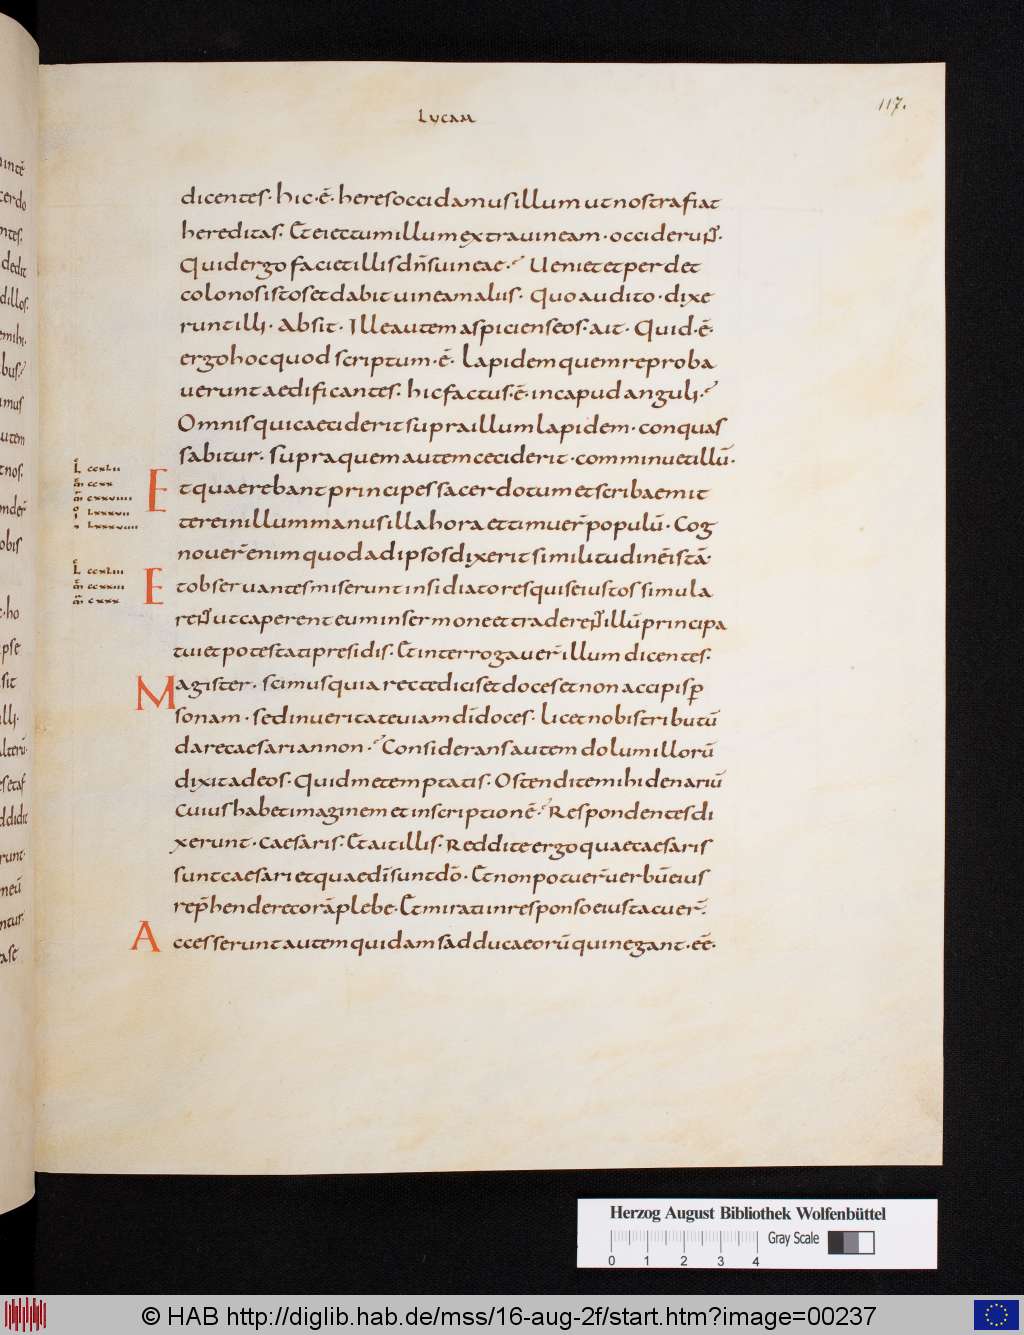 LUCAM
117.
dicentes· hic·ē· heres occidamus illum ut nostra fiat
hereditas. Et eiectum illum extra uineam· occiderunt.
Quid ergo faciet illis dn̄s uineae? Ueniet et perdet
colonos istos et dabit uineam aliis. Quo audito· dixe
runt illi· Absit. Ille autem aspiciens eos· ait· Quid·ē·
ergo hoc quod scriptum·ē· Lapidem quem reproba
uerunt aedificantes· hic factus·ē· in capud anguli?
Omnis qui caeciderit supra illum lapidem· conquas
sabitur· supra quem autem ceciderit· comminuet illū·
Et quaerebant principes sacerdotum et scribae mit
tere in illum manus illa hora et timuer̄ populū· Cog
nouer̄ enim quod ad ipsos dixerit similitudinē istā·
Et obseruantes miserunt insidiatores qui se iustos simula
rent ut caperent eum in sermone et traderent illū principa
tui et potestati presidis· Et interrogauer̄ illum dicentes·
Magister· scimus quia recte dicis et doces et non accipis p̄
sonam· sed in ueritate uiam dī doces· licet nobis tributū
dare caesari an non? Considerans autem dolum illorū
dixit ad eos· Quid me temptatis· Ostendite mihi denariū
Cuius habet imaginem et inscriptionē? Respondentes di
xerunt· Caesaris· Et ait illis· Reddite ergo quae caesaris
sunt caesari et quae dī sunt dō· Et non potuer̄ uerbū eius
rep̄hendere corā plebe· Et mirati in responso eius tacuer̄·
Accesserunt autem quidam sadducaeorū qui negant·eē·
L ccxlii
m̄ ccxx
m̄ cxxviiii
io lxxxvii
io lxxxviiii
L ccxliii
m̄ ccxxiii
m̄ cxxx
Herzog August Bibliothek Wolfenbüttel
Gray Scale
0 1 2 3 4
© HAB http://diglib.hab.de/mss/16-aug-2f/start.htm?image=00237